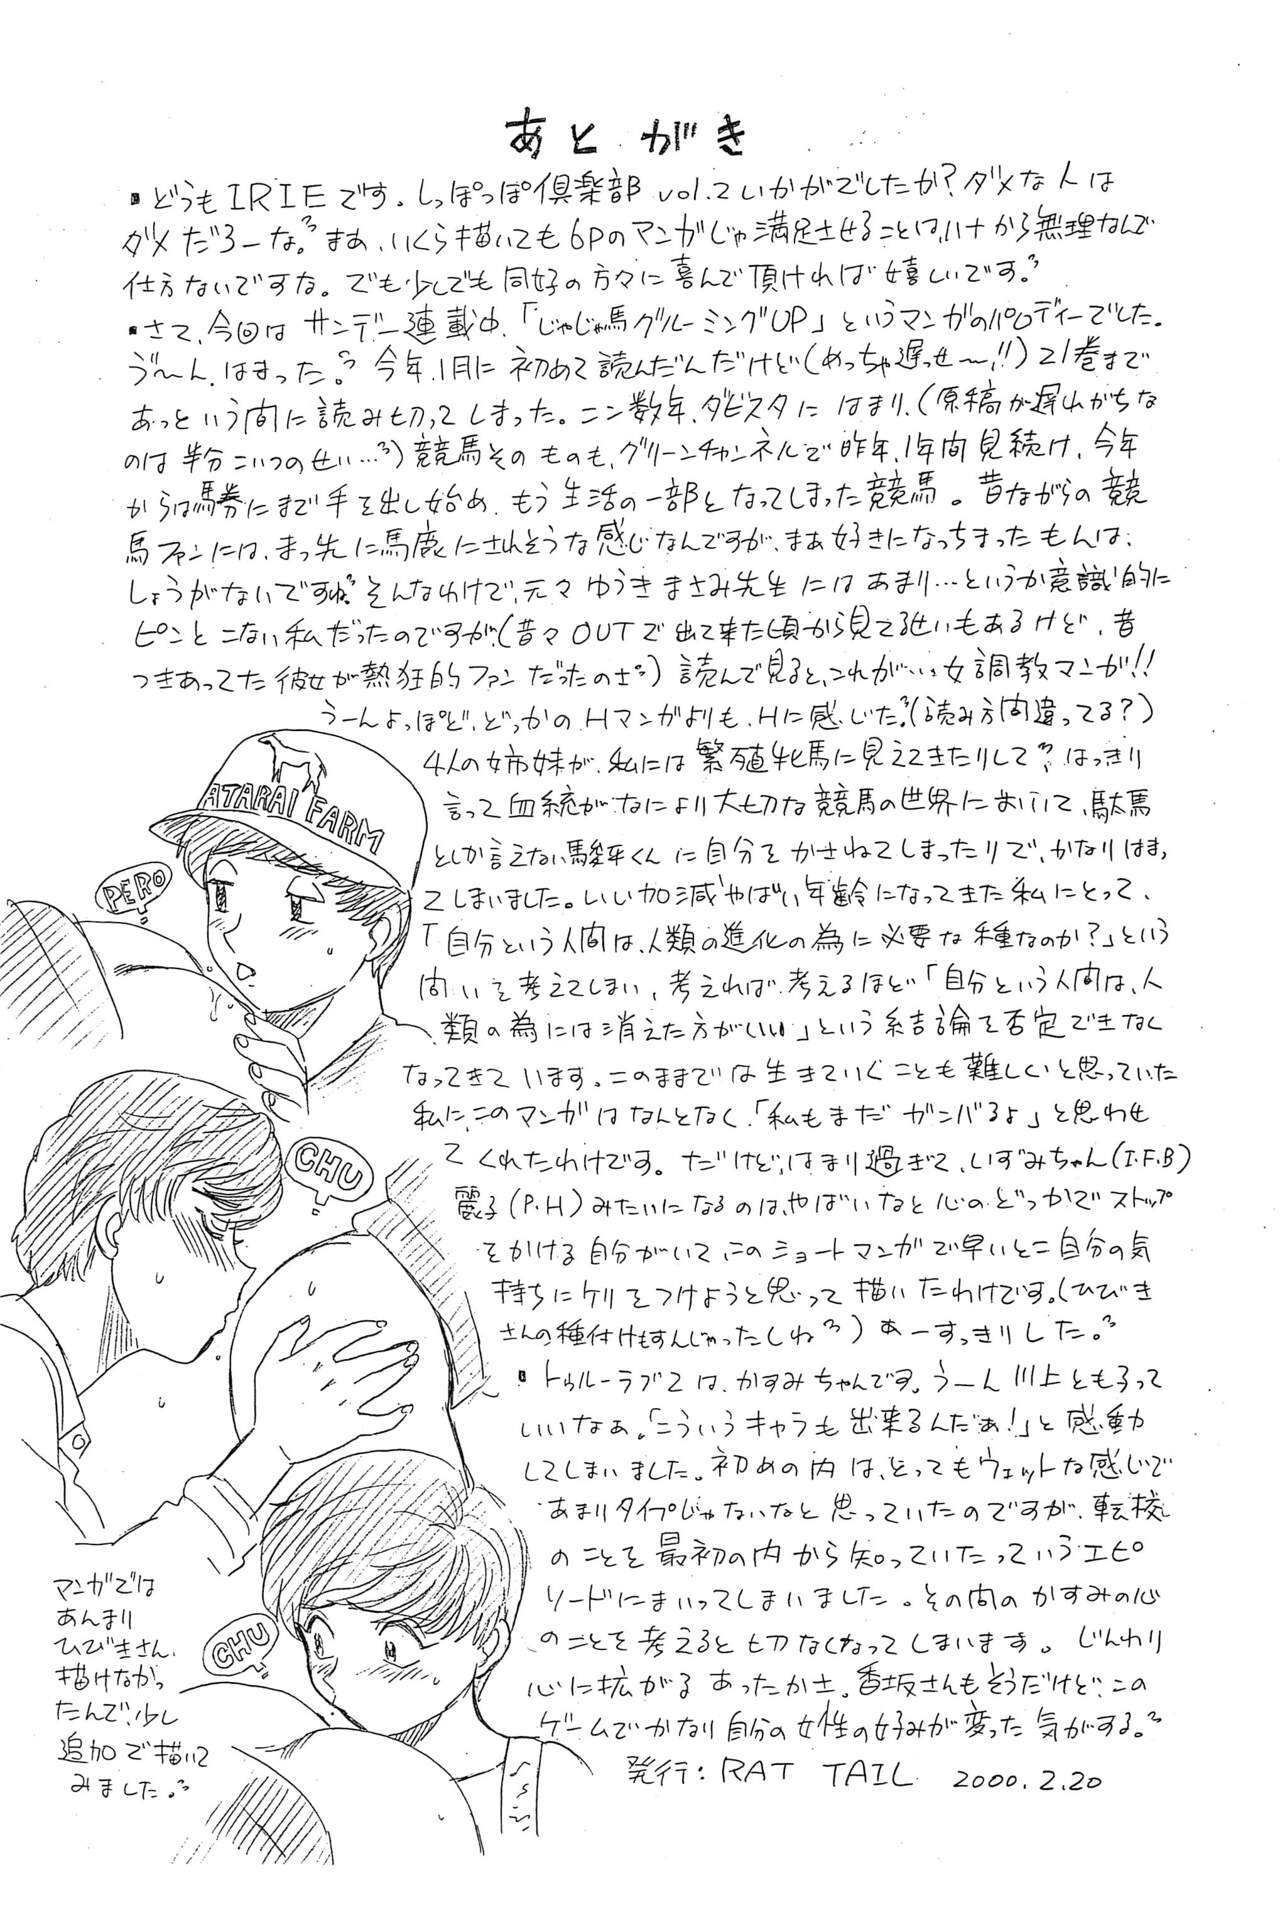 あとがき
・どうもIRIEです。しっぽっぽ倶楽部 vol.2いかがでしたか?ダメな人は
ダメだろーな。まあ、いくら描いても6Pのマンガじゃ満足させることは、ハナから無理なんで
仕方ないですな。でも少しでも同好の方々に喜んで頂ければ嬉しいです。
・さて、今回はサンデー連載中、「じゃじゃ馬グルーミングUP」というマンガのパロディーでした。
う〜ん、はまった。今年、1月に初めて読んだんだけど(めっちゃ遅っせ〜!!)21巻まで
あっという間に読み切ってしまった。ここ数年、ダビスタにはまり、(原稿が遅れがちな
のは半分こいつのせい…)競馬そのものも、グリーンチャンネルで昨年、1年間見続け、今年
からは馬券にまで手を出し始め、もう生活の一部となってしまった競馬。昔ながらの競
馬ファンには、まっ先に馬鹿にされそうな感じなんですが、まあ好きになっちまったもんは、
しょうがないですね。そんなわけで、元々ゆうきまさみ先生にはあまり…というか意識的に
ピンとこない私だったのですが、(昔々OUTで出て来た頃から見てる世いもあるけど、昔
つきあってた彼女が熱狂的ファンだったのさ)読んで見ると、これがいい女調教マンガ!!
うーんよっぽど、どっかのHマンガよりも、Hに感じた。(読み方間違ってる?)
4人の姉妹が、私には繁殖牝馬に見えてきたりして。はっきり
言って血統がなにより大切な競馬の世界において、駄馬
としか言えない駿平くんに自分をかさねてしまったりで、かなりはまっ
てしまいました。いい加減やばい年齢になってきた私にとって、
「自分という人間は、人類の進化の為に必要な種なのか?」という
問いを考えてしまい、考えれば考えるほど「自分という人間は、人
類の為には消えた方がいい」という結論を否定できなく
なってきています。このままでは生きていくことも難しくいと思っていた
私に、このマンガはなんとなく、「私もまだガンバるよ」と思わせ
てくれたわけです。だけど、はまり過ぎて、いずみちゃん(I.F.B)
麗子(P.H)みたいになるのは、やばいなと心のどっかでストップ
をかける自分がいて、このショートマンガで早いとこ自分の気
持ちにケリをつけようと思って描いたわけです。(ひびき
さんの種付けもすんじゃったしね)あーすっきりした。
・トゥルーラブ2は、かすみちゃんです。うーん川上とも子って
いいなぁ。「こういうキャラも出来るんだぁ!」と感動
してしまいました。初めの内は、とってもウェットな感じで
あまりタイプじゃないなと思っていたのですが、転校
のことを最初の内から知っていたっていうエピ
ソードにまいってしまいました。その間のかすみの心
のことを考えると切なくなってしまいます。じんわり
心に拡がるあったかさ。香坂さんもそうだけど、この
ゲームでかなり自分の女性の好みが変った気がする。
発行:RAT TAIL 2000.2.20
ATARAI FARM
PERO
CHU
CHU
マンガでは
あんまり
ひびきさん、
描けなかっ
たんで、少し
追加で描いて
みました。